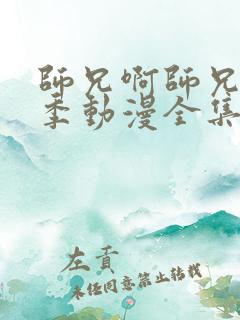 師兄啊師兄
季動漫全集
左貢
未经同意禁止转载